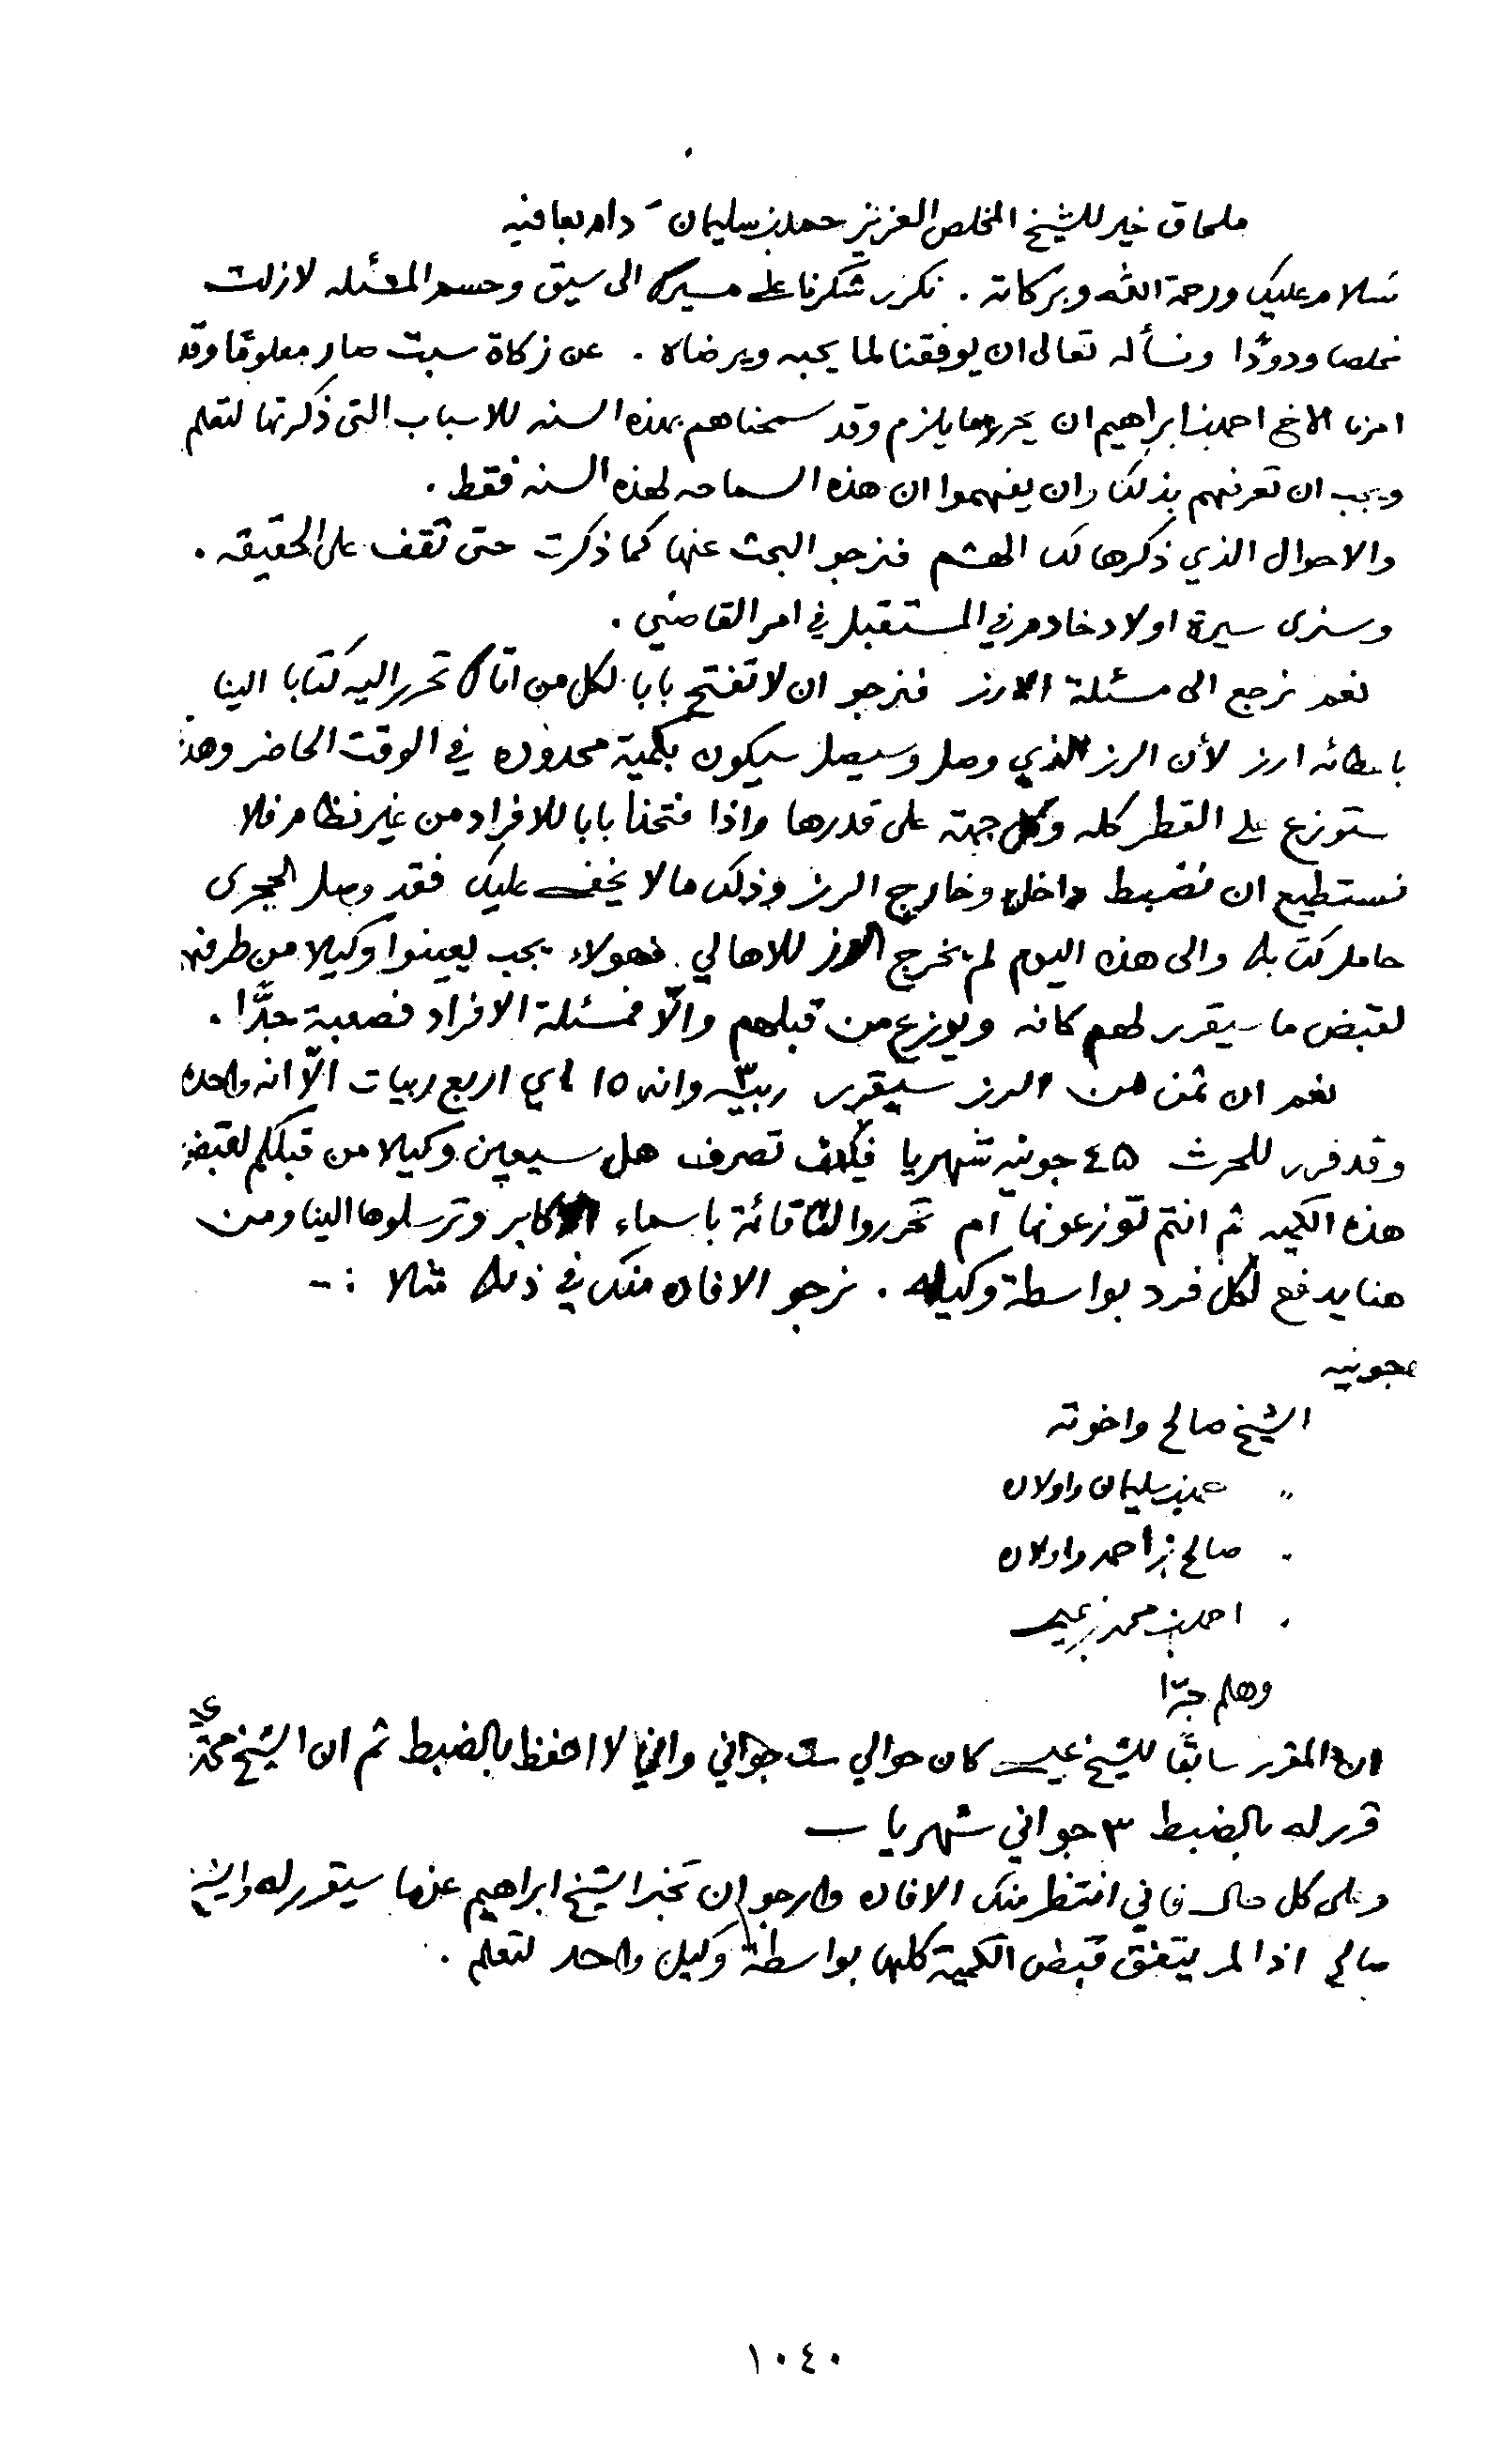 ملحاق خير للشيخ المخلص العزيز حمد بن سليمان دام بعافيه
سلام عليك ورحمة الله وبركاته . نكرر شكرنا على مسيرك الى سيق وحسم المسئله لازلت
مخلصا ودودًا ونسأله تعالى ان يوفقنا لما يحبه ويرضاه . عن زكاة سبت صار معلومًا وقد
امرنا الاخ احمد بن ابراهيم ان يحرر بما يلزم وقد سمحناهم بهذه السنه للاسباب التى ذكرتها لتعلم
ويجب ان تعرفهم بذلك وان يفهموا ان هذه السماحه لهذه السنه فقط .
والاحوال الذي ذكرها لك الهشم فنرجو البحث عنها كما ذكرت حتى تقف على الحقيقه .
وسنرى سيرة اولاد خادم في المستقبل في امر القاضي .
نعم نرجع الى مسئلة الارز فنرجو ان لا تفتح بابا لكل من اتاك تحرر اليه كتابا الينا
باعطائه ارز لأن الرز الذي وصل وسيصل سيكون بكمية محدوده في الوقت الحاضر وهذه
ستوزع على القطر كله وكل جهة على قدرها واذا فتحنا بابا للافراد من غير نظام فلا
نستطيع ان نضبط داخل وخارج الرز وذلك ما لا يخفى عليك فقد وصل الحجرى
حامل كتابك والى هذه اليوم لم يخرج الرز للاهالي فهولاء يجب يعينوا وكيلا من طرفهم
لقبض ما سيقرر لهم كافه ويوزع من قبلهم والّا فمسئلة الافراد فصعبة جدًّا .
نعم ان ثمن من الرز سيقرر ٣ ربيّه وانه ١٥ اي اربع ربيات الّا انه واحده
وقد قرر للحرث ٤٥ جونيه شهريا فكيف تصرف هل سيعين وكيلا من قبلكم لقبض
هذه الكميه ثم انتم توزعونها ام تحرروا لنا قائمة باسماء الاكابر وترسلوها الينا ومن
هنا يدفع لكل فرد بواسطة وكيله . نرجو الافاده منك في ذلك مثلا : -
جونيه
الشيخ صالح واخوته
" حمد بن سليمان واولاده
" صالح بن احمد واولاده
" احمد بن محمد بن عيسى
وهلم جرّا
ان المقرر سابقًا للشيخ عيسى كان حوالي ست جواني واني لا احفظ بالضبط ثم ان الشيخ محمد
قرر له بالضبط ٣ جواني شهريا
وعلى كل حال فاني انتظر منك الافاده وارجو ان تخبر الشيخ ابراهيم عما سيقرر له والشيخ
صالح اذا لم يتفق قبض الكمية كلها بواسطة وكيل واحد لتعلم .
١٠٤٠